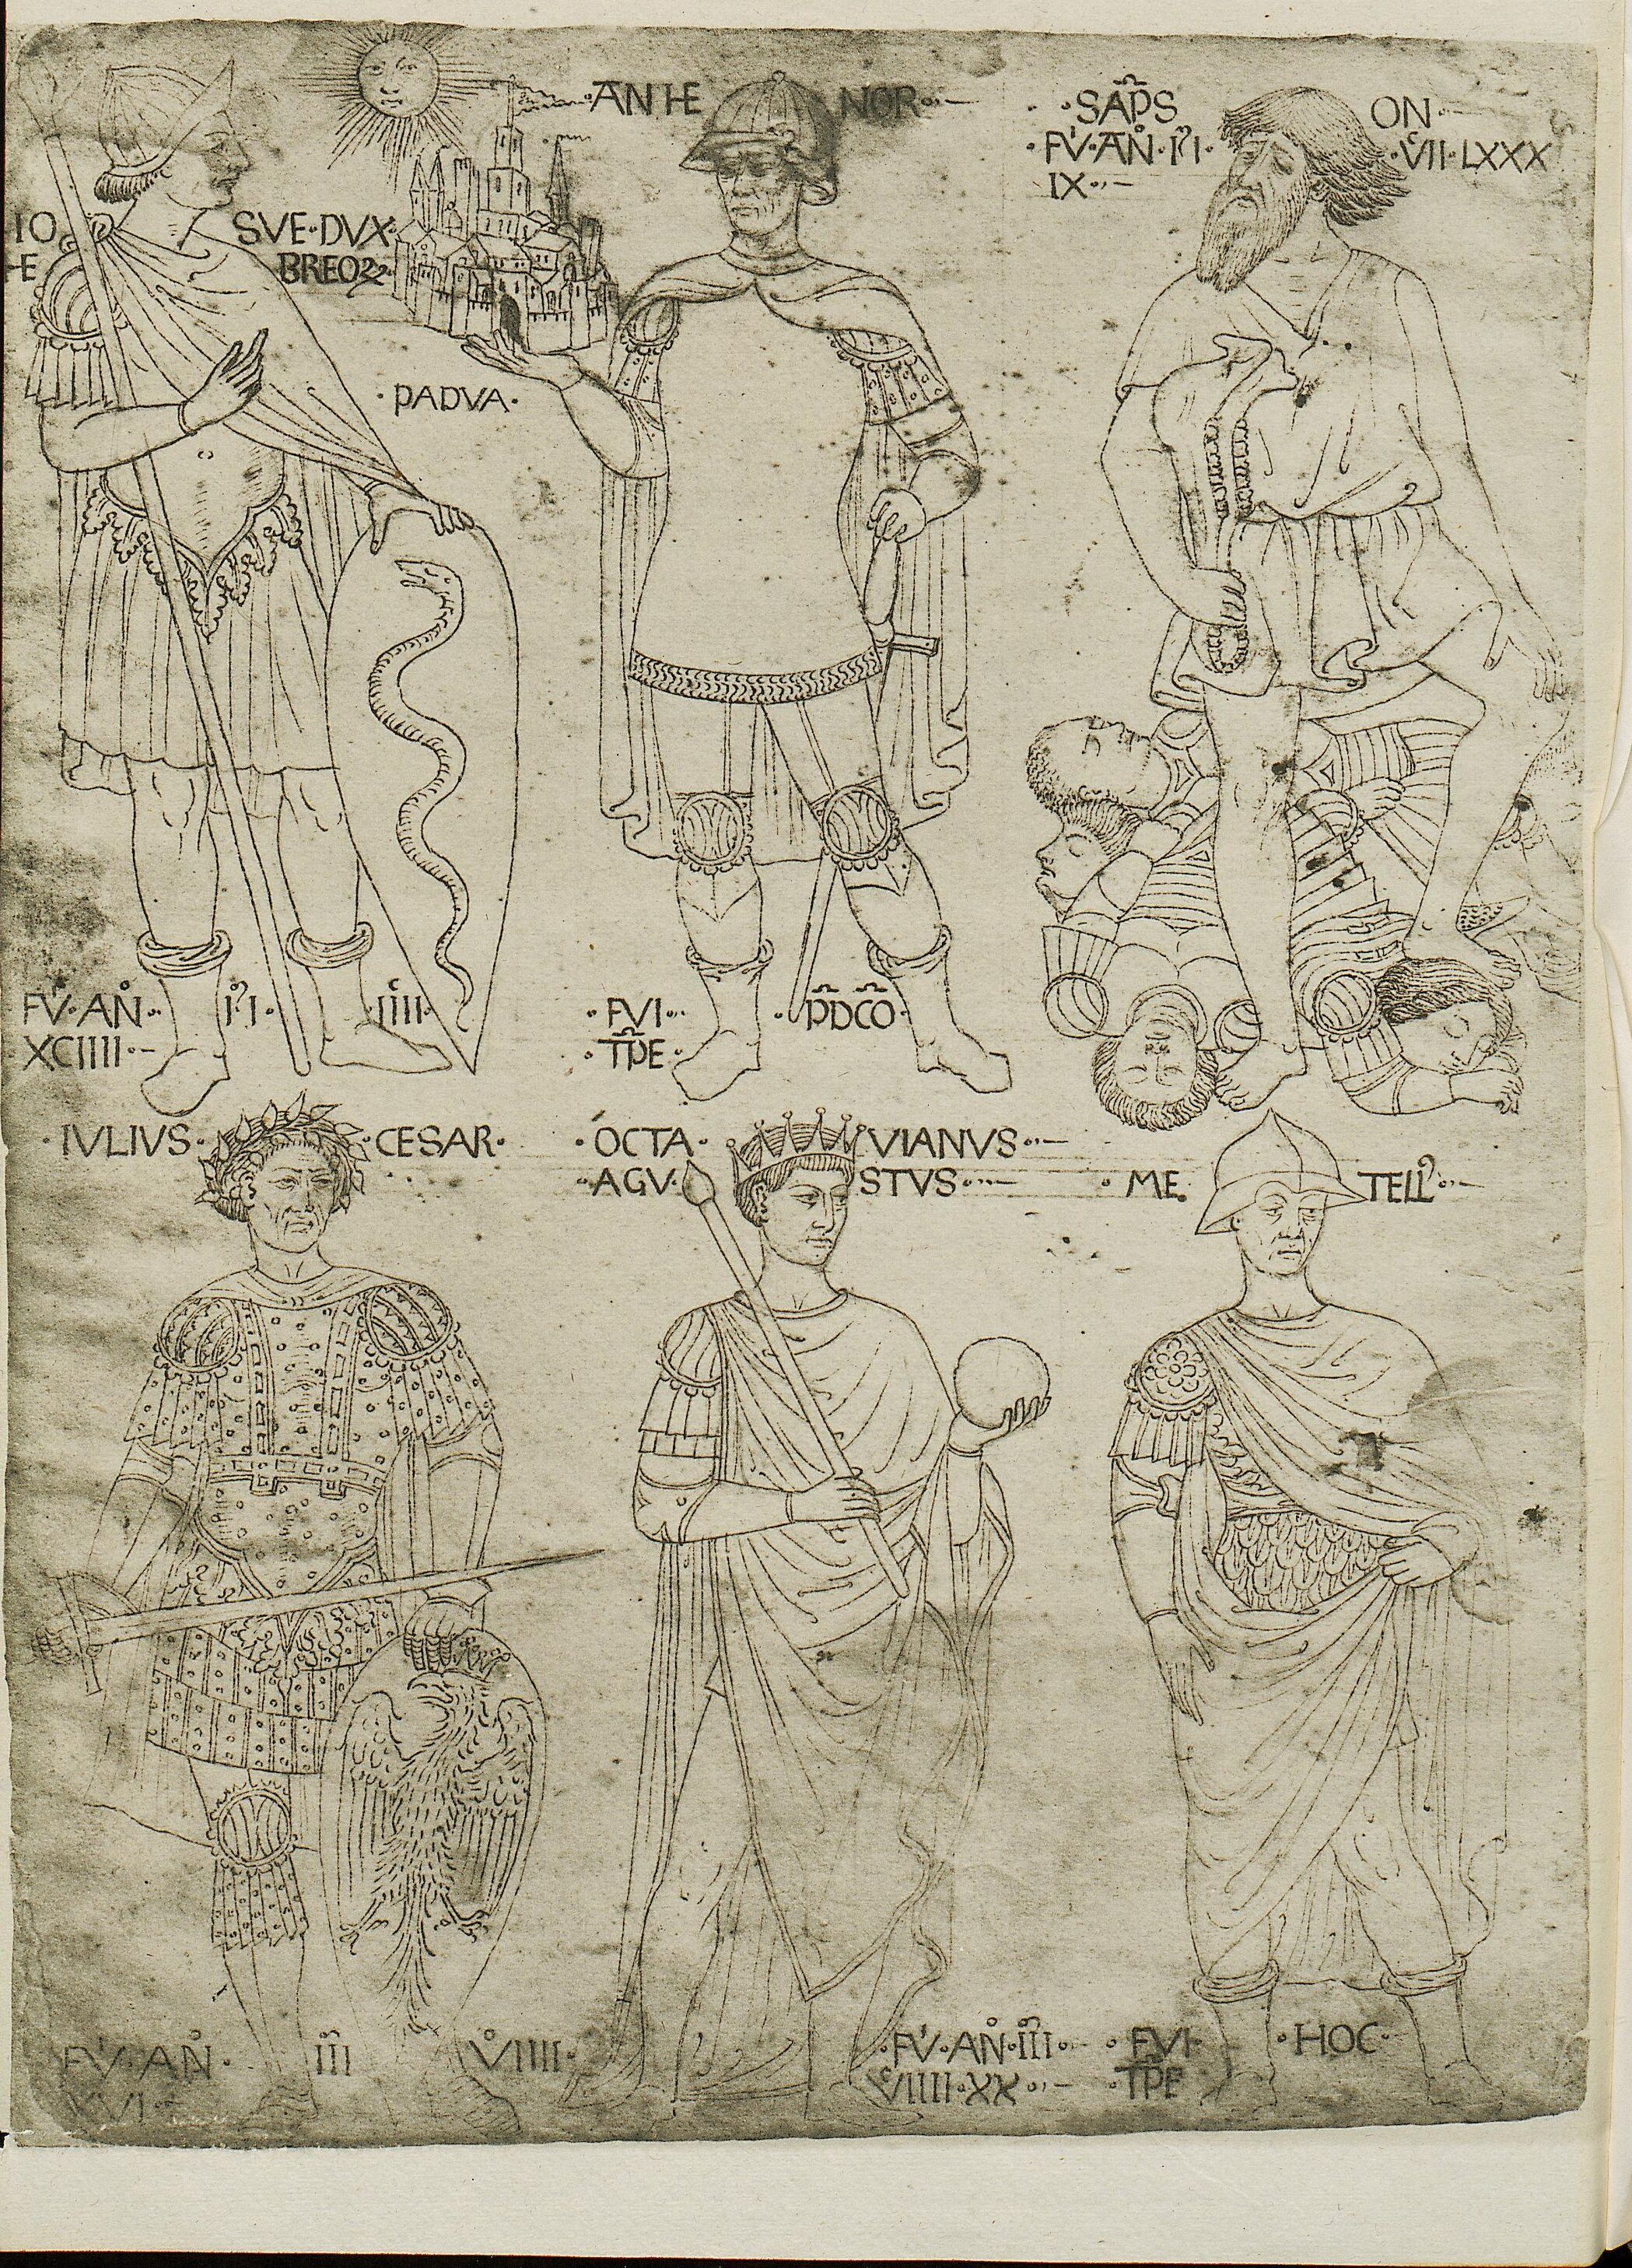 IO SVE·DVX
HE BREOꝝ
·PADVA·
FV·AN· M̊I IIII·
XCIIII·
ANTE NOR·
·FVI· ·P̄DC̄O·
·T̄PE·
·SAP̄S ON·
·FV·AN·M̊I· VII·LXXX
IX·
·IVLIVS· ·CESAR·
FV·AN· III VIIII·
XVI·
·OCTA· VIANVS·
·AGV· STVS·
·FV·AN·III·
VIIII·XX·
·ME· TELL'·
·FVI· ·HOC·
·T̄PE